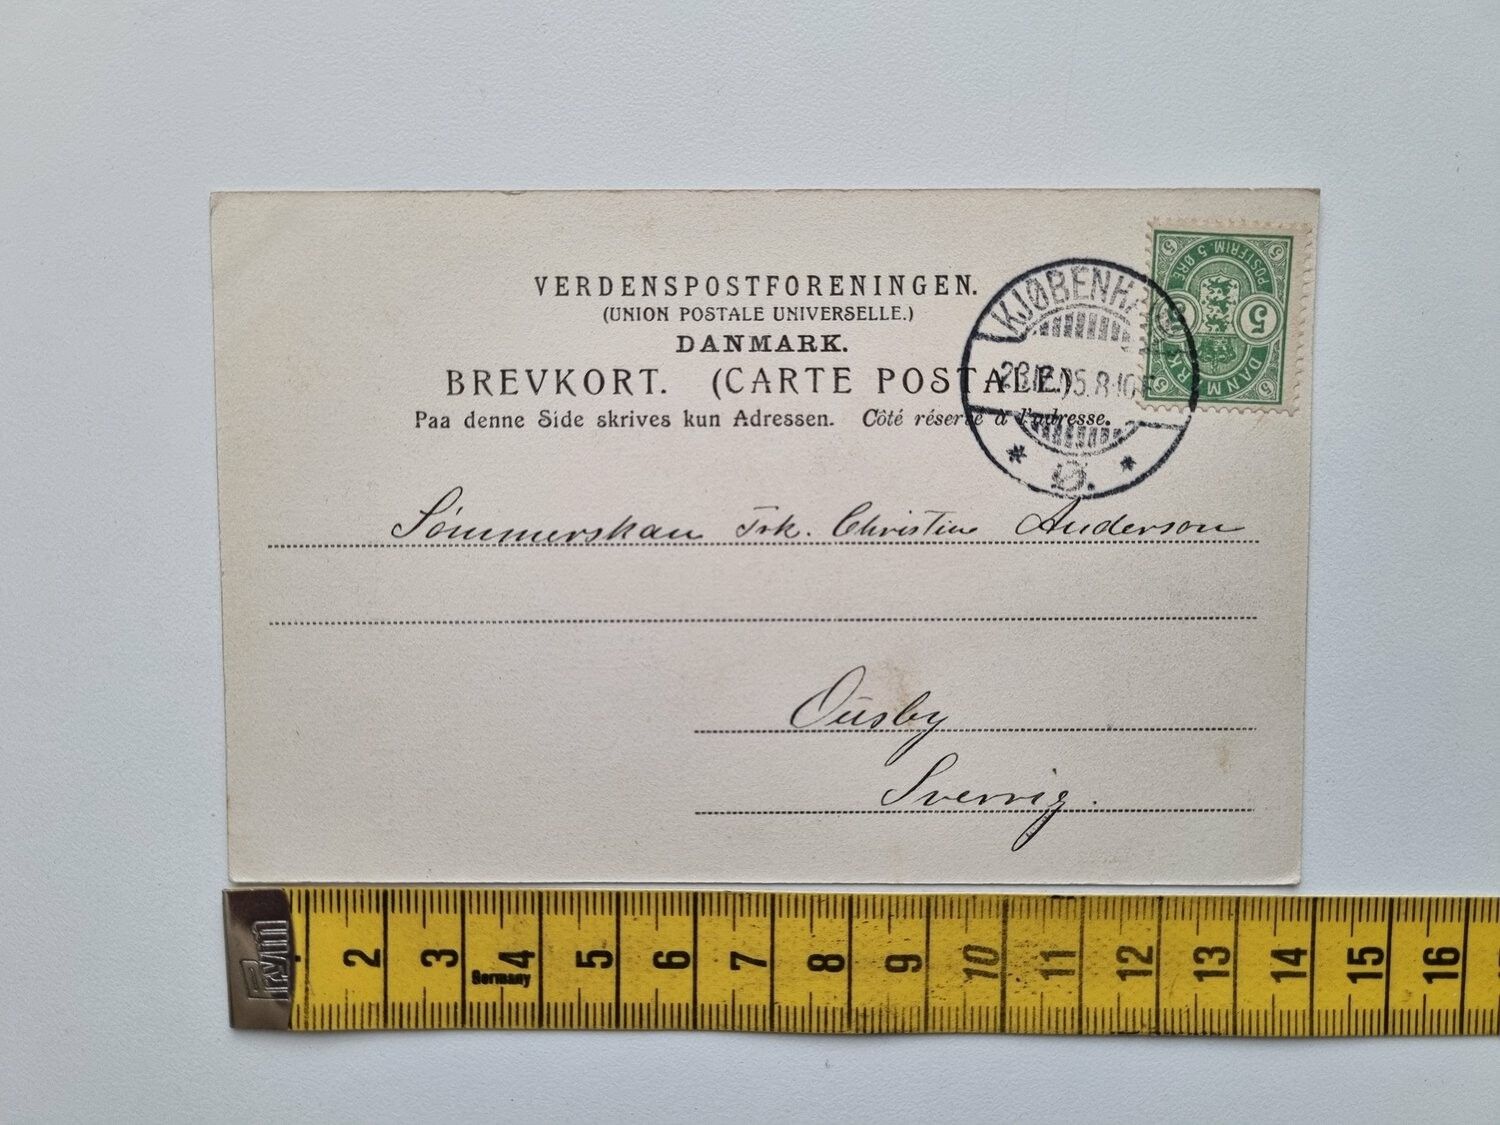 VERDENSPOSTFORENINGEN.
(UNION POSTALE UNIVERSELLE.)
DANMARK.
BREVKORT. (CARTE POSTALE.)
Paa denne Side skrives kun Adressen. Côté réservé à l'adresse.
KJØBENHAVN
Ø.
POSTFRIM. 5 ØRE
DANMARK
5 5
5 5 5 5
Christine Anderson
Ousby
Sverrig.
Prym
2 3 4 5 6 7 8 9 10 11 12 13 14 15 16
Germany